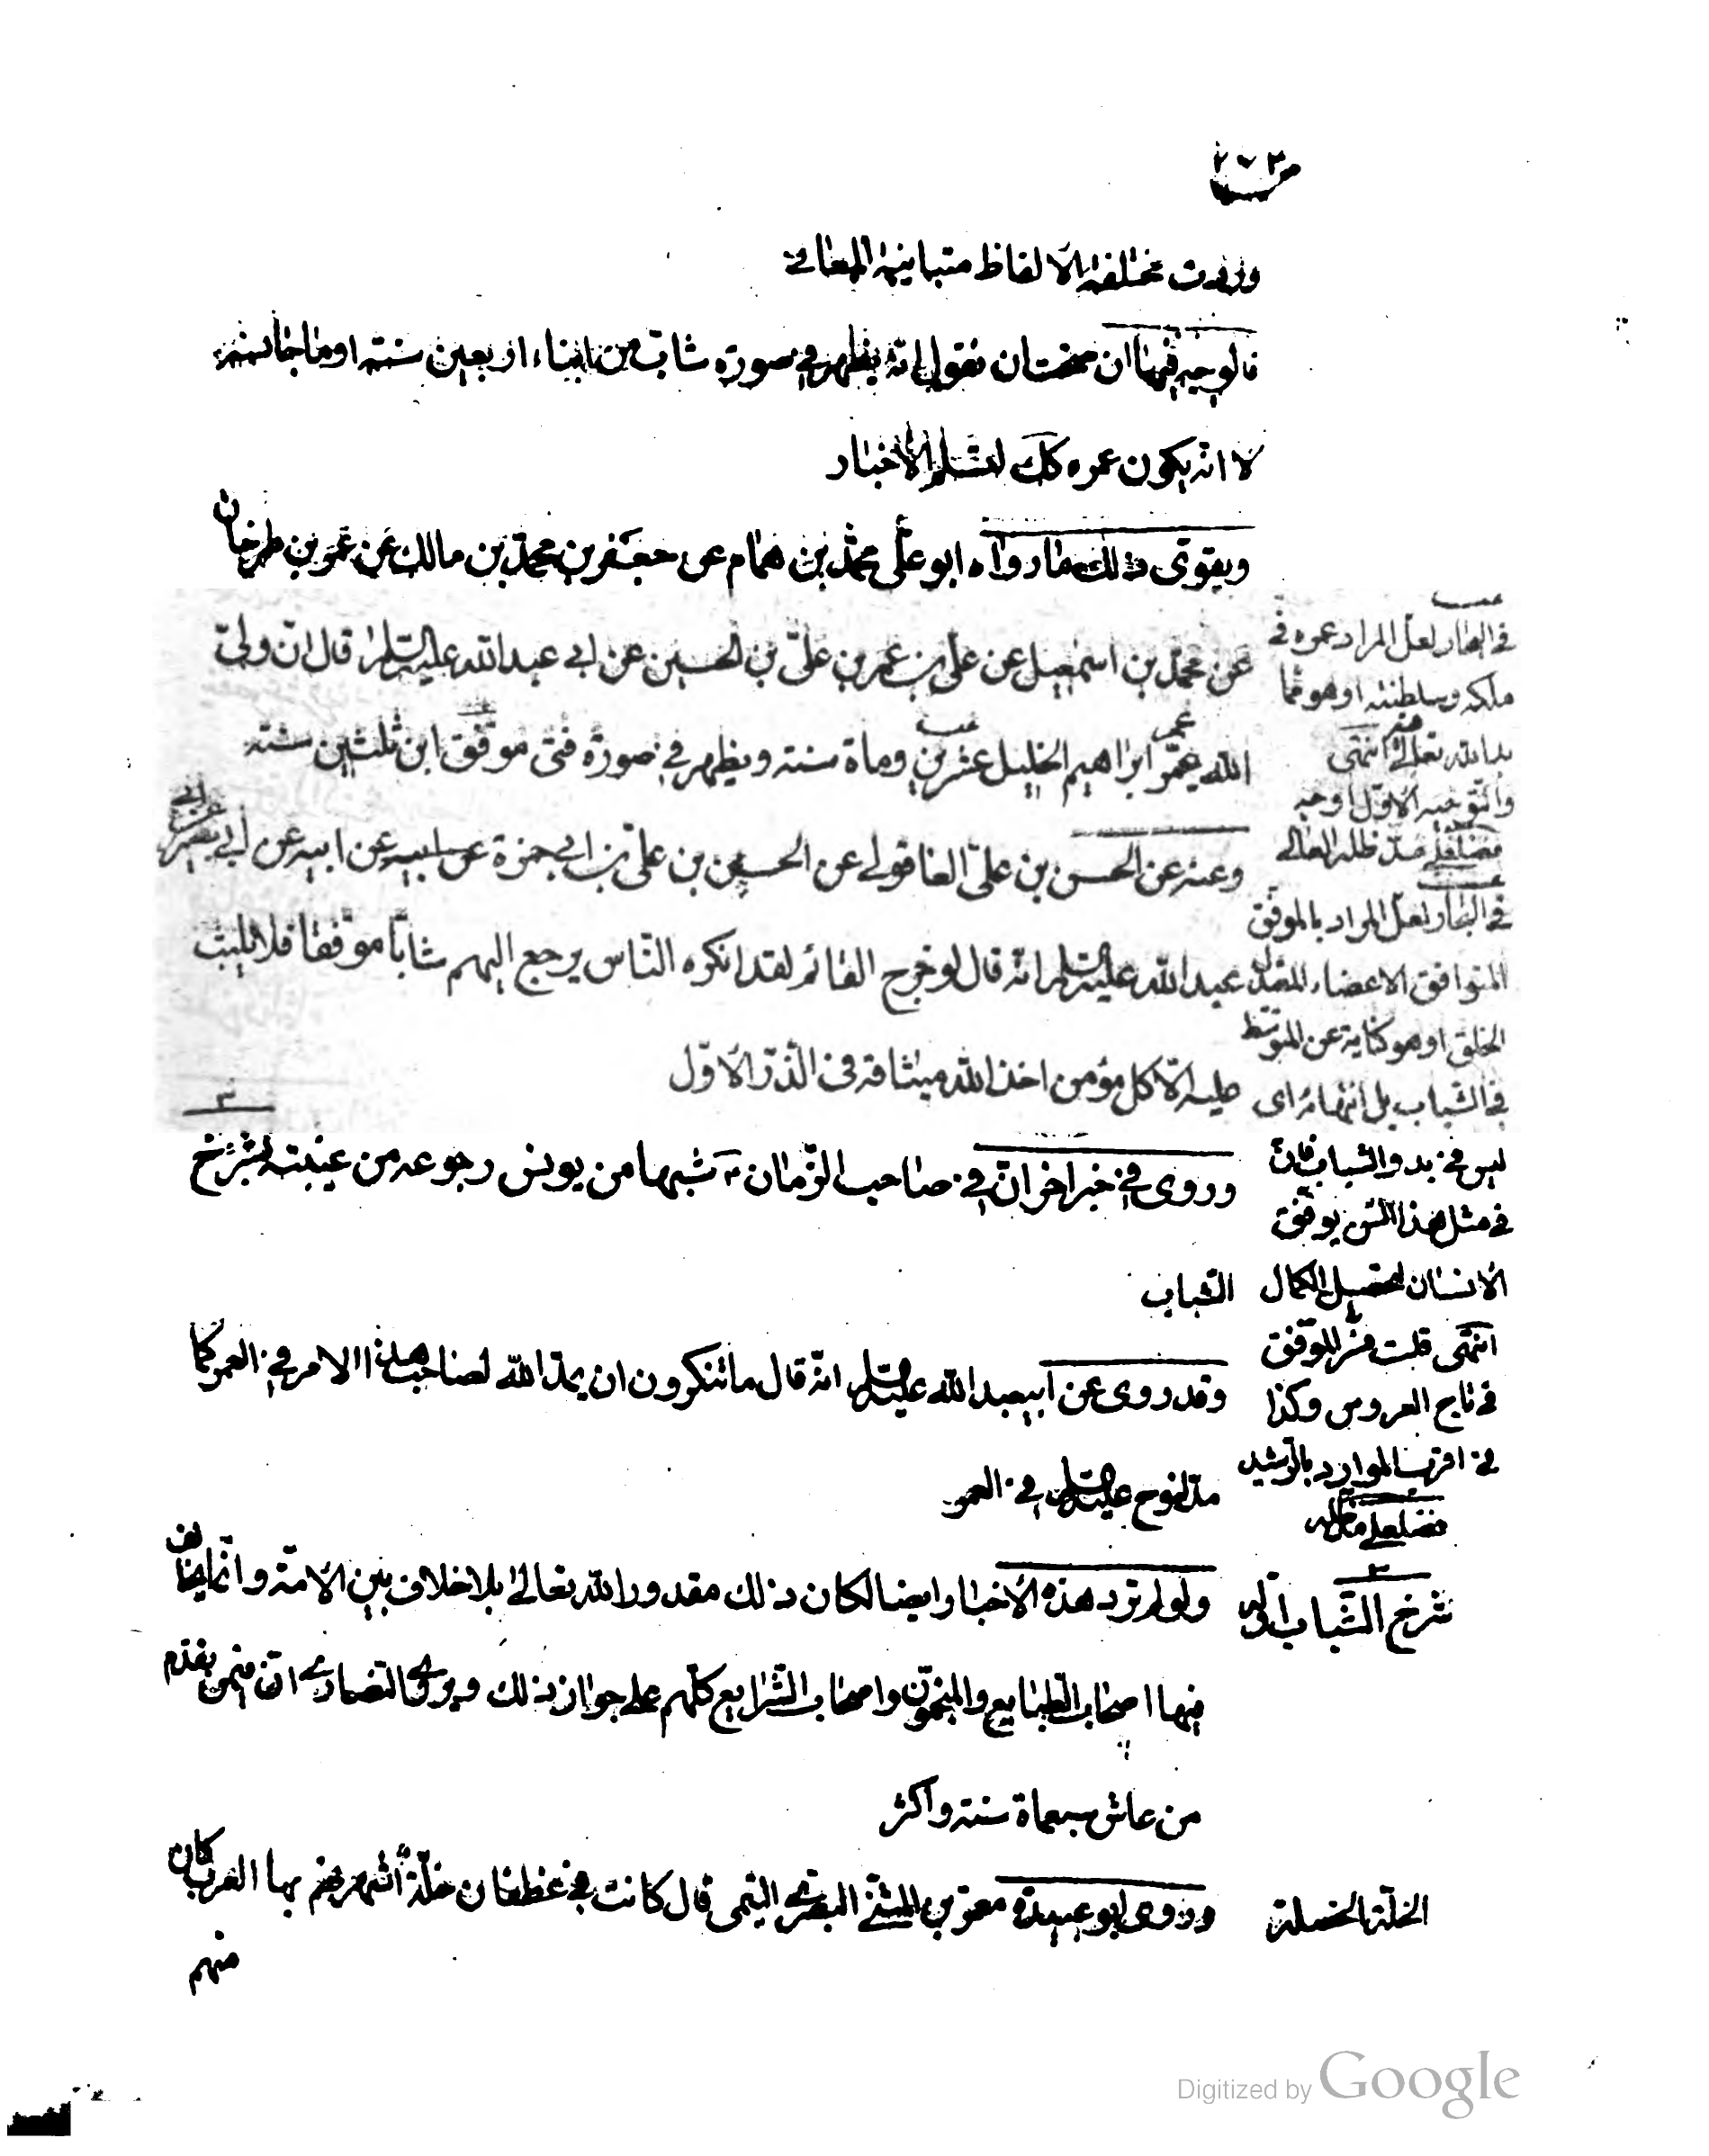 ٢٧٣
وردت مختلفة الالفاظ متباينة المعاني
فالوجه فيها ان صحت ان نقول انه يظهر في صورة شاب من ابناء اربعين سنة او ما جانسه
لا انه يكون عمره كك لتسلم الاخبار
ويقوى ذلك ما رواه ابو علي محمد بن همام عن جعفر بن محمد بن مالك عن عمر بن طرخان
عن محمد بن اسمعيل عن علي بن عمر بن علي بن الحسين عن ابي عبد الله عليه السلام قال ان ولي
الله يعمر عمر ابراهيم الخليل عشرين ومأة سنة ويظهر في صورة فتى موفق ابن ثلثين سنة
وعنه عن الحسن بن علي العاقولي عن الحسن بن علي بن ابي حمزة عن ابيه عن ابي بصير عن ابي
عبد الله عليه السلام انه قال لو خرج القائم لقد انكره الناس يرجع اليهم شابا موفقا فلا يلبث
عليه الا كل مؤمن اخذ الله ميثاقه في الذر الاول
وروى في خبر اخر ان في صاحب الزمان ع شبها من يونس رجوعه من غيبته بشرخ
الشباب
وقد روى عن ابيعبد الله عليه السلام انه قال ما تنكرون ان يمد الله لصاحب هذا الامر في العمر كما
مد لنوح عليه السلام في العمر
ولو لم ترد هذه الاخبار ايضا لكان ذلك مقدورا لله تعالى بلا خلاف بين الامة وانما يخالف
فيها اصحاب الطبايع والمنجمون واصحاب الشرايع كلهم على جواز ذلك ويروى النصارى ان فيمن تقدم
من عاش سبعمأة سنة واكثر
وروى ابو عبيدة معمر بن المثنى البصرى التيمى قال كانت في غطفان خلة اشهرتهم بها العرب كان
منهم
في البحار لعل المراد عمره في
ملكه وسلطنته او هو مما
بدا لله تعالى فيه انتهى
والتوجيه الاول اوجه
فضلعلي مد ظله العالي
في البحار لعل المراد بالموفق
المتوافق الاعضاء المعتدل
الخلق او هو كناية عن المتوسط
في الشباب بل انتهائه اى
ليس في بدو الشباب فان
في مثل هذا السن يوفق
الانسان لتحصيل الكمال
انتهى قلت فسر الموفق
في تاج العروس وكذا
في اقرب الموارد بالرشيد
فضلعلي مد ظله
شرخ الشباب اوله
الخلة الخصلة
Digitized by Google